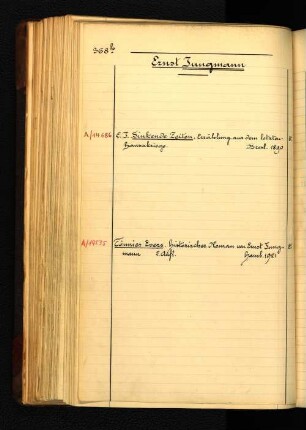 368b
Ernst Jungmann
A/14686 E. J. Sinkende Zeiten. Erzählung aus dem letzten 8
Hansakriege. Brsl. 1890
Tönnies Evers. historischer Roman von Ernst Jung- 8
mann Hamb.